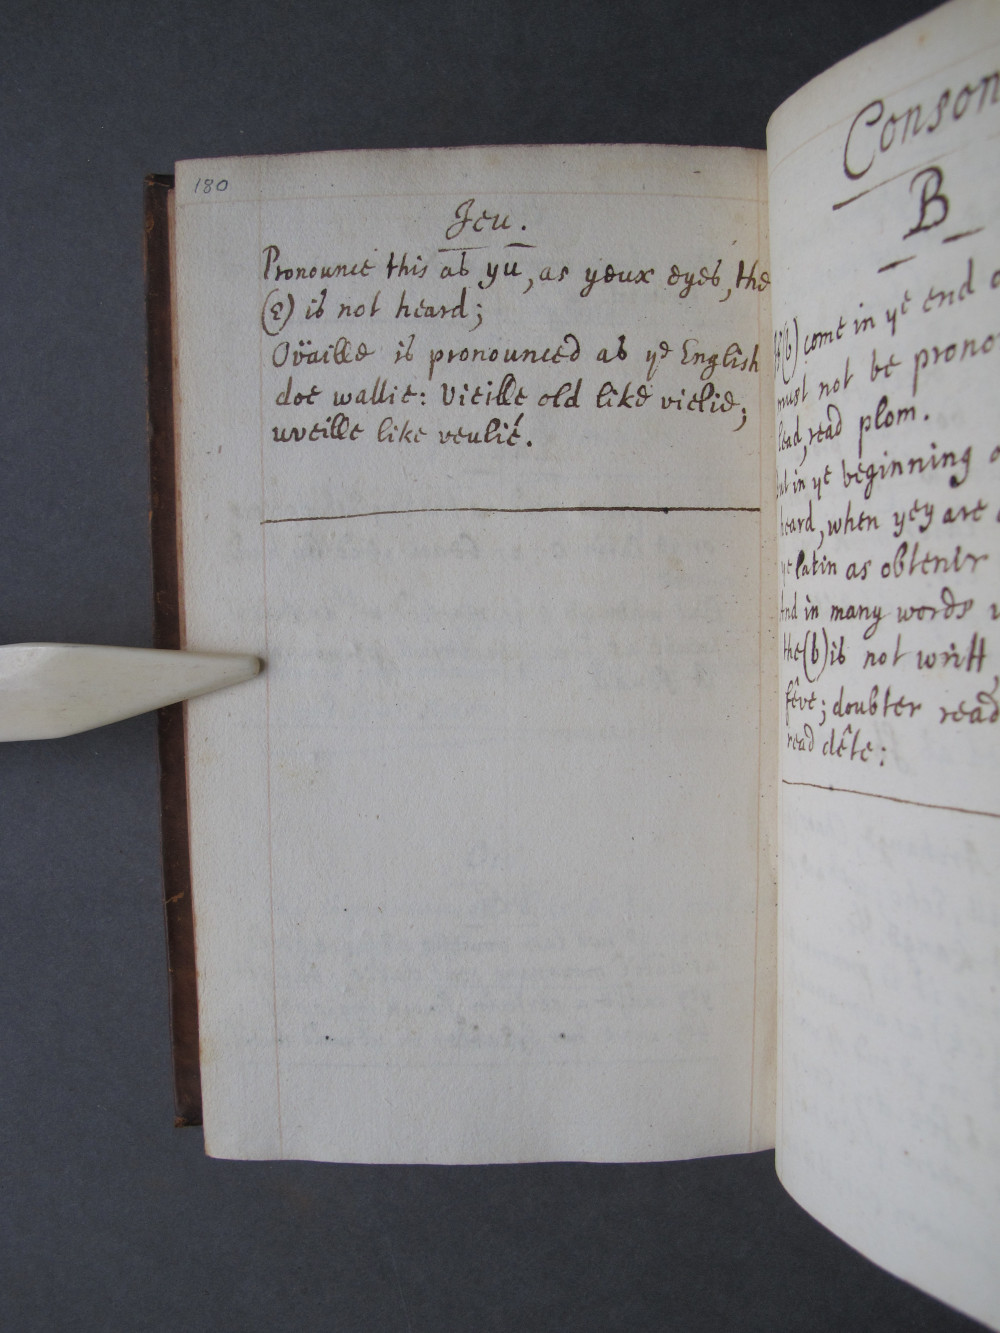 180
Jeu.
Pronounce this as yu, as yeux eyes, the
(e) is not heard;
Oüaille is pronounced as ye English
doe wallie: Vieille old like vielie;
uveille like veulié.
Conson
B
If (b) come in ye end
must not be prono
lead, read plom.
But in ye beginning
heard, when yey are
ye latin as obtenir
And in many words
the (b) is not writt,
fêve; doubter read
read dête: